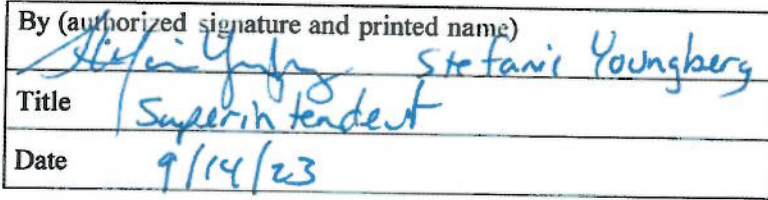 By (authorized signature and printed name)
Stefanie Youngberg
Title Superintendent
Date 9/14/23